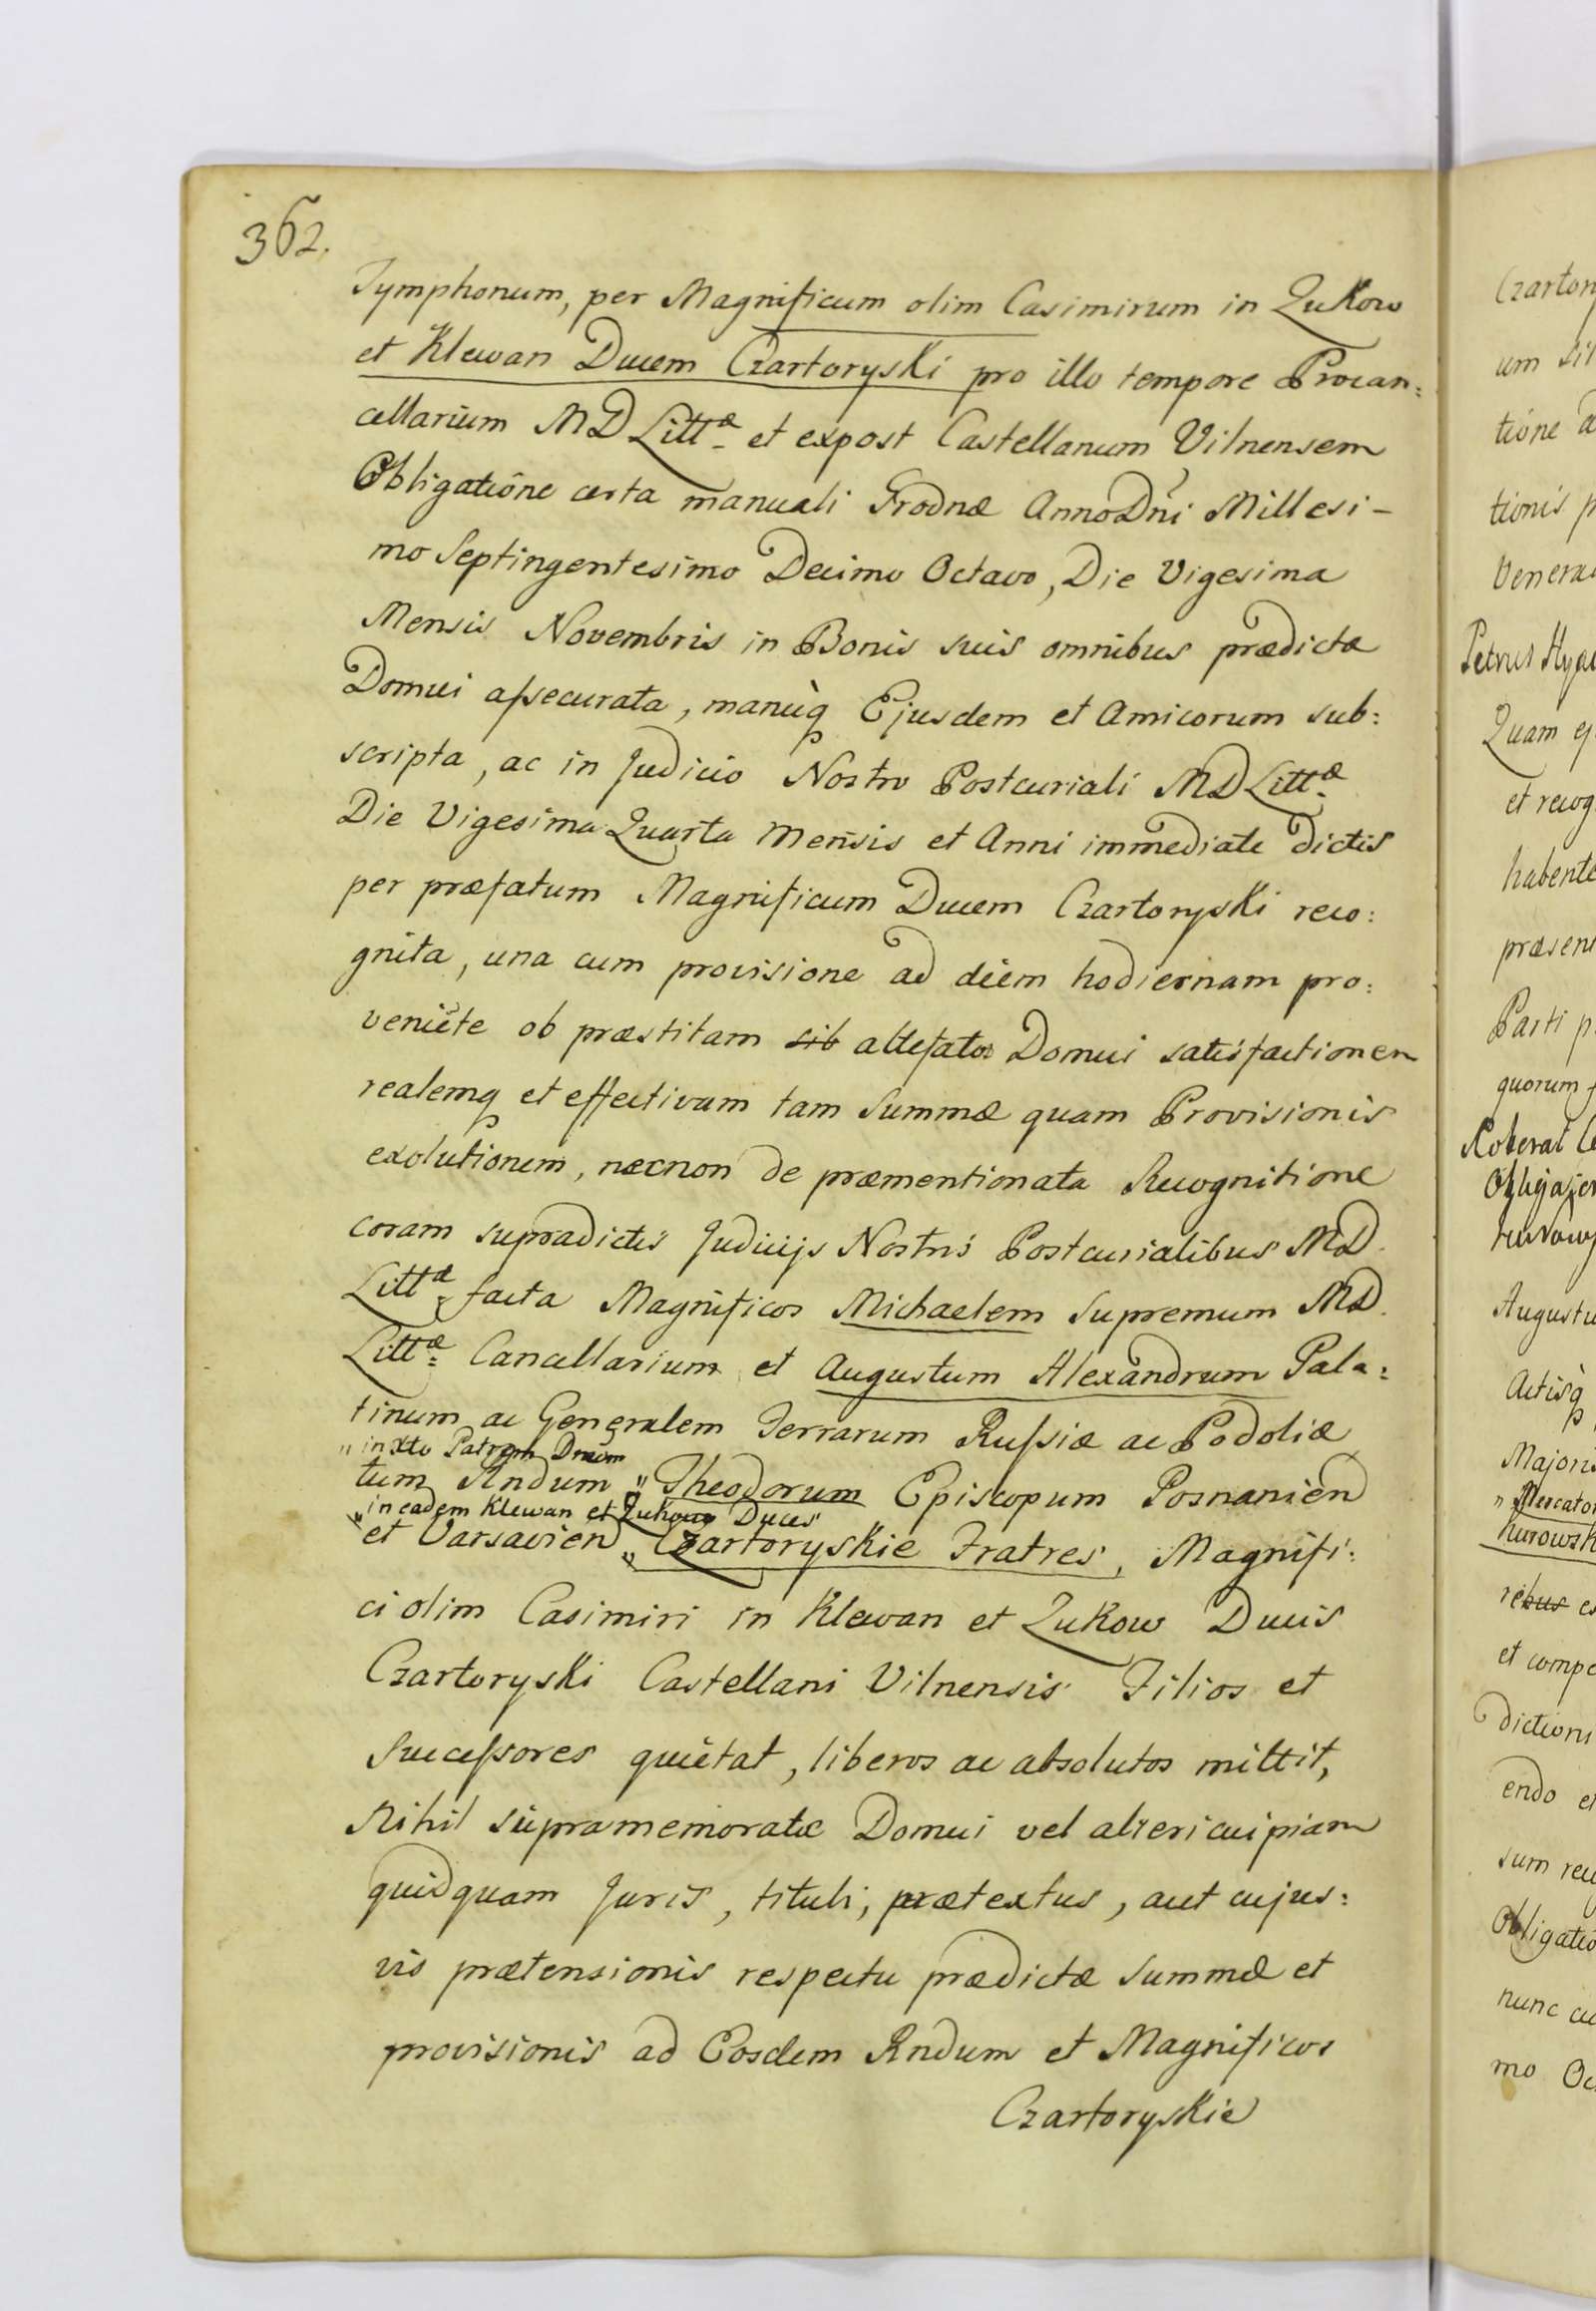 362.
Tymphonum, per Magnificum olim Casimirum in Zukow
et Klewan Ducem Czartoryski pro illo tempore Procan:
cellarium MD Littæ et expost Castellanum Vilnensem
Obligatióne certa manuali Grodnæ Anno Dni Millesi-
mo Septingentesimo Decimo Octavo, Die Vigesima
Mensis Novembris in Bonis suis omnibus prædictæ
Domui assecurata, manúq Ejusdem et Amicorum sub:
scripta, ac in Judicio Nostro Postcuriali MD Littæ
Die Vigesima Quarta Mensis et Anni immediate dictis
per præfatum Magnificum Ducem Czartoryski reco:
gnita, una cum provisione ad diem hodiernam pro:
veniẽte ob præstitam sib attefatæ Domui satisfactionem
realemq et effectivam tam Summæ quam Provisionis
exolutionem, necnon de præmentionata Recognitione
coram supradictis Judicijs Nostris Postcurialibus MD.
Littæ facta Magnificos Michaelem Supremum MD.
Littæ Cancellarium et Augustum Alexandrum Pala:
tinum ac Generalem Terrarum Russiæ ac Podoliæ
" in Xto Patrem Dnum
tum Rndum " Theodorum Episcopum Posnanien
" in eadem Klewan et Zukow Duces
et Varsavien " Czartoryskie Fratres, Magnifi:
ci olim Casimiri in Klewan et Zukow Ducis
Czartoryski Castellani Vilnensis Filios et
Successores quietat, liberos ac absolutos mittit,
Nihil supramemoratæ Domui vel alteri cuipiam
quidquam Juris, tituli, prætextus, aut cujus:
vis prætensionis respectu prædictæ Summæ et
provisionis ad Eosdem Rndum et Magnificos
Czartoryskie
um
tióne
tionis
Petrus
Quam
et recog
habente
præsen
Parti
quorum
Augustu
Actisq
Majoris
rebus
et compe
dictioni
endo
sum
Obligatio
nunc
mo